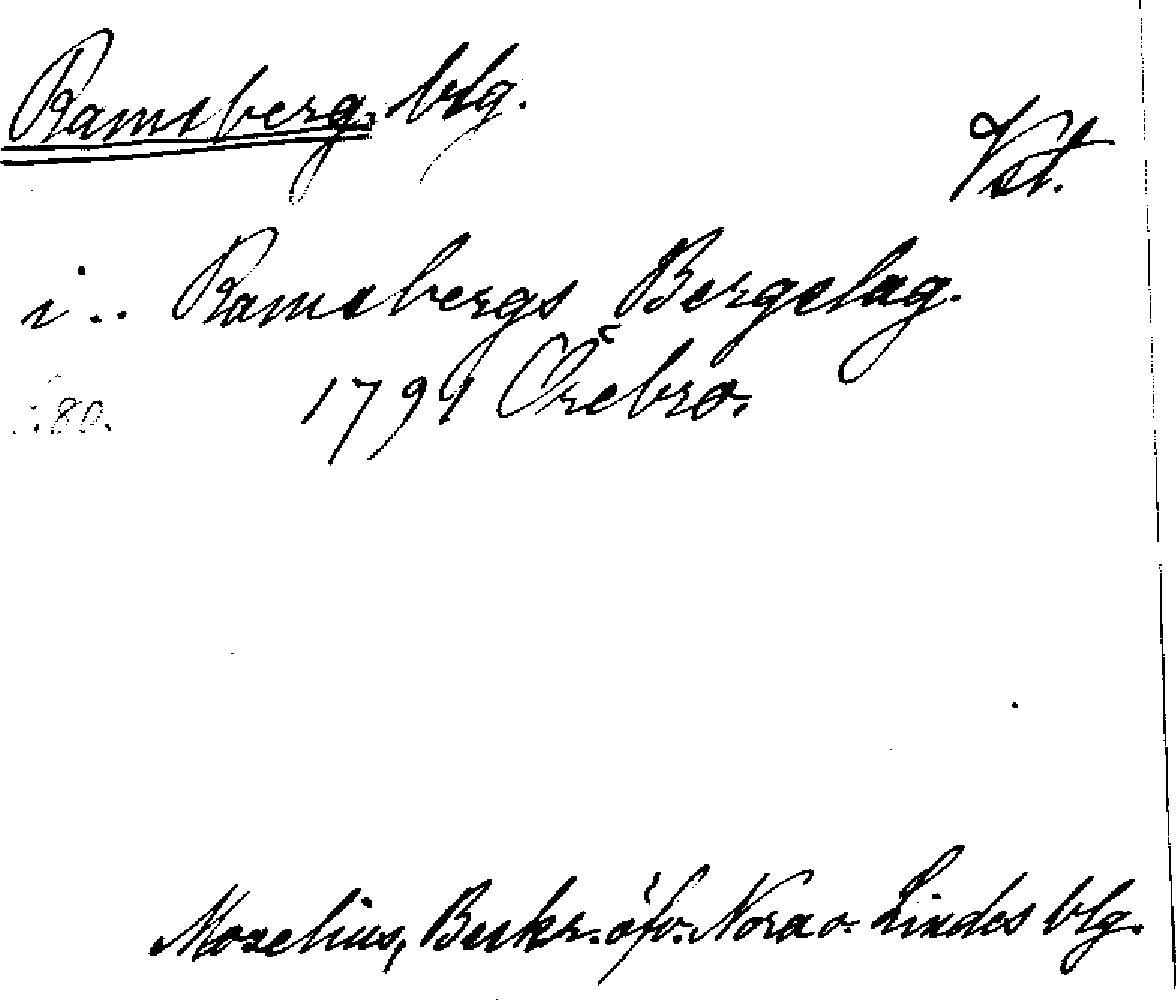 Ramsberg, blg.
Vst.
i .. Ramsbergs Bergslag.
1799 Örebro.
:80.
Moxelius, Beskr. öfv. Nora o. Lindes blg.